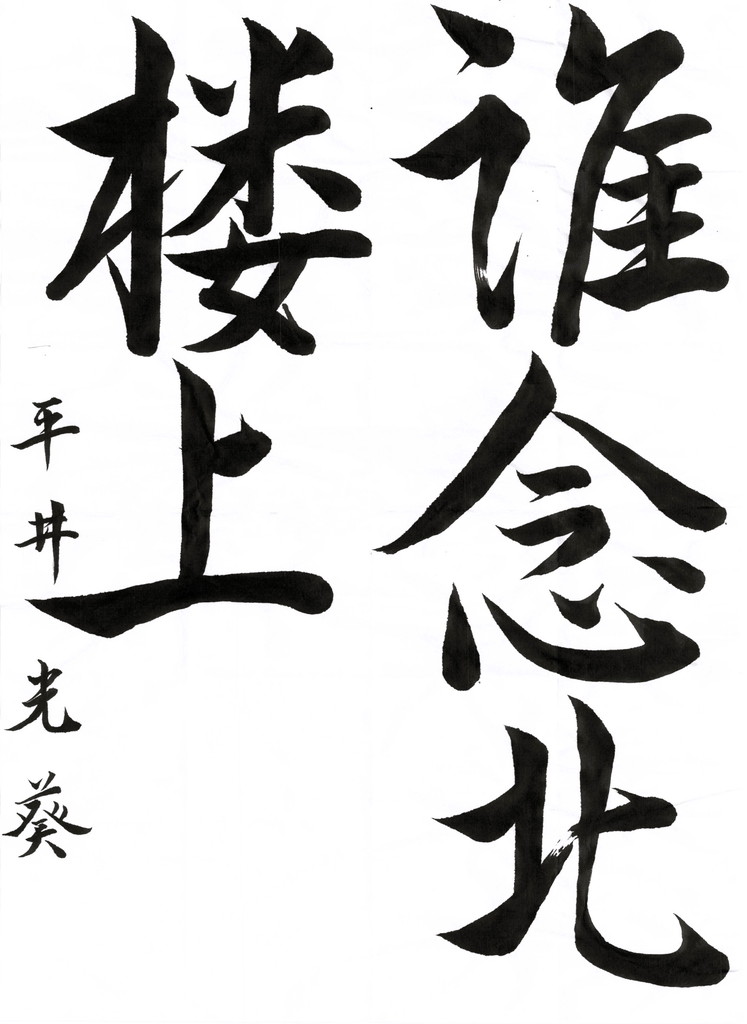 谁念北
楼上
平井光葵